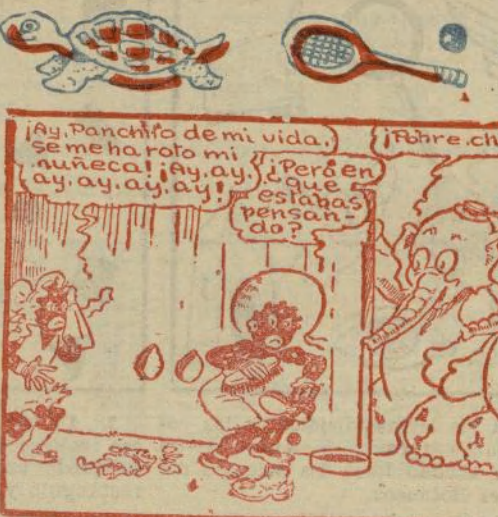 ¡Ay, Panchito de mi vida,
se me ha roto mi
muñeca! ¡Ay, ay,
ay, ay, ay, ay!
¡Pero en
¿que
estabas
pensan-
do?
¡Pobre, ch